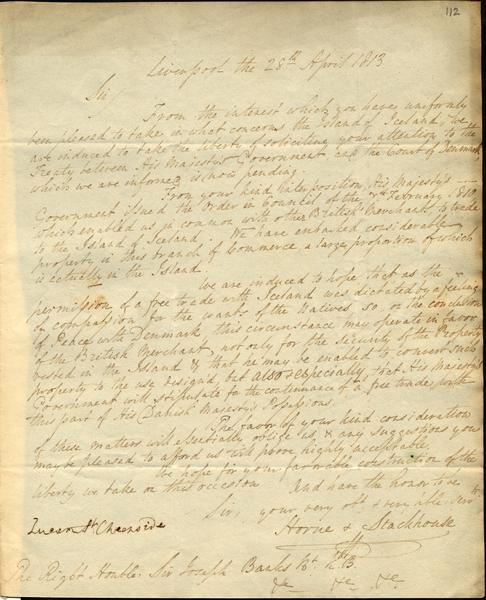 112
Liverpool the 28th April 1813
Sir/
From the interest which you have uniformly
been pleased to take in what concerns the Island of Iceland, we
are induced to take the liberty of soliciting your attention to the
Treaty between His Majesty's Government and the Court of Denmark
which we are informed is now pending.
From your kind interposition, His Majesty's
Government issued the Order in Council of the 7th February 1810
which enabled us in common with other British Merchants, to trade
to the Island of Iceland. We have embarked considerable
property in this branch of Commerce, a large proportion of which
is actually in the Island.
We are induced to hope that as the
permission of a free trade with Iceland was dictated by a feeling
of compassion for the wants of the Natives so, on the conclusion
of Peace with Denmark this circumstance may operate in favor
of the British Merchant, not only for the Security of the Property
vested in the Island & that he may be enabled to convert such
property to the use designed, but also & especially, that His Majesty's
Government will stipulate for the continuance of a free trade with
this part of His Danish Majesty's Possessions.
The favor of your kind consideration
of these matters will essentially oblige us, & any suggestions you
may be pleased to afford us will prove highly acceptable,
We hope for your favorable construction of the
liberty we take on this occasion
And have the honor to be
Sir, your very obt & very hble Servts
Horne & Stackhouse
Queen St Cheapside
The Right Honble: Sir Joseph Banks Bt. K.B.
&c &c &c.